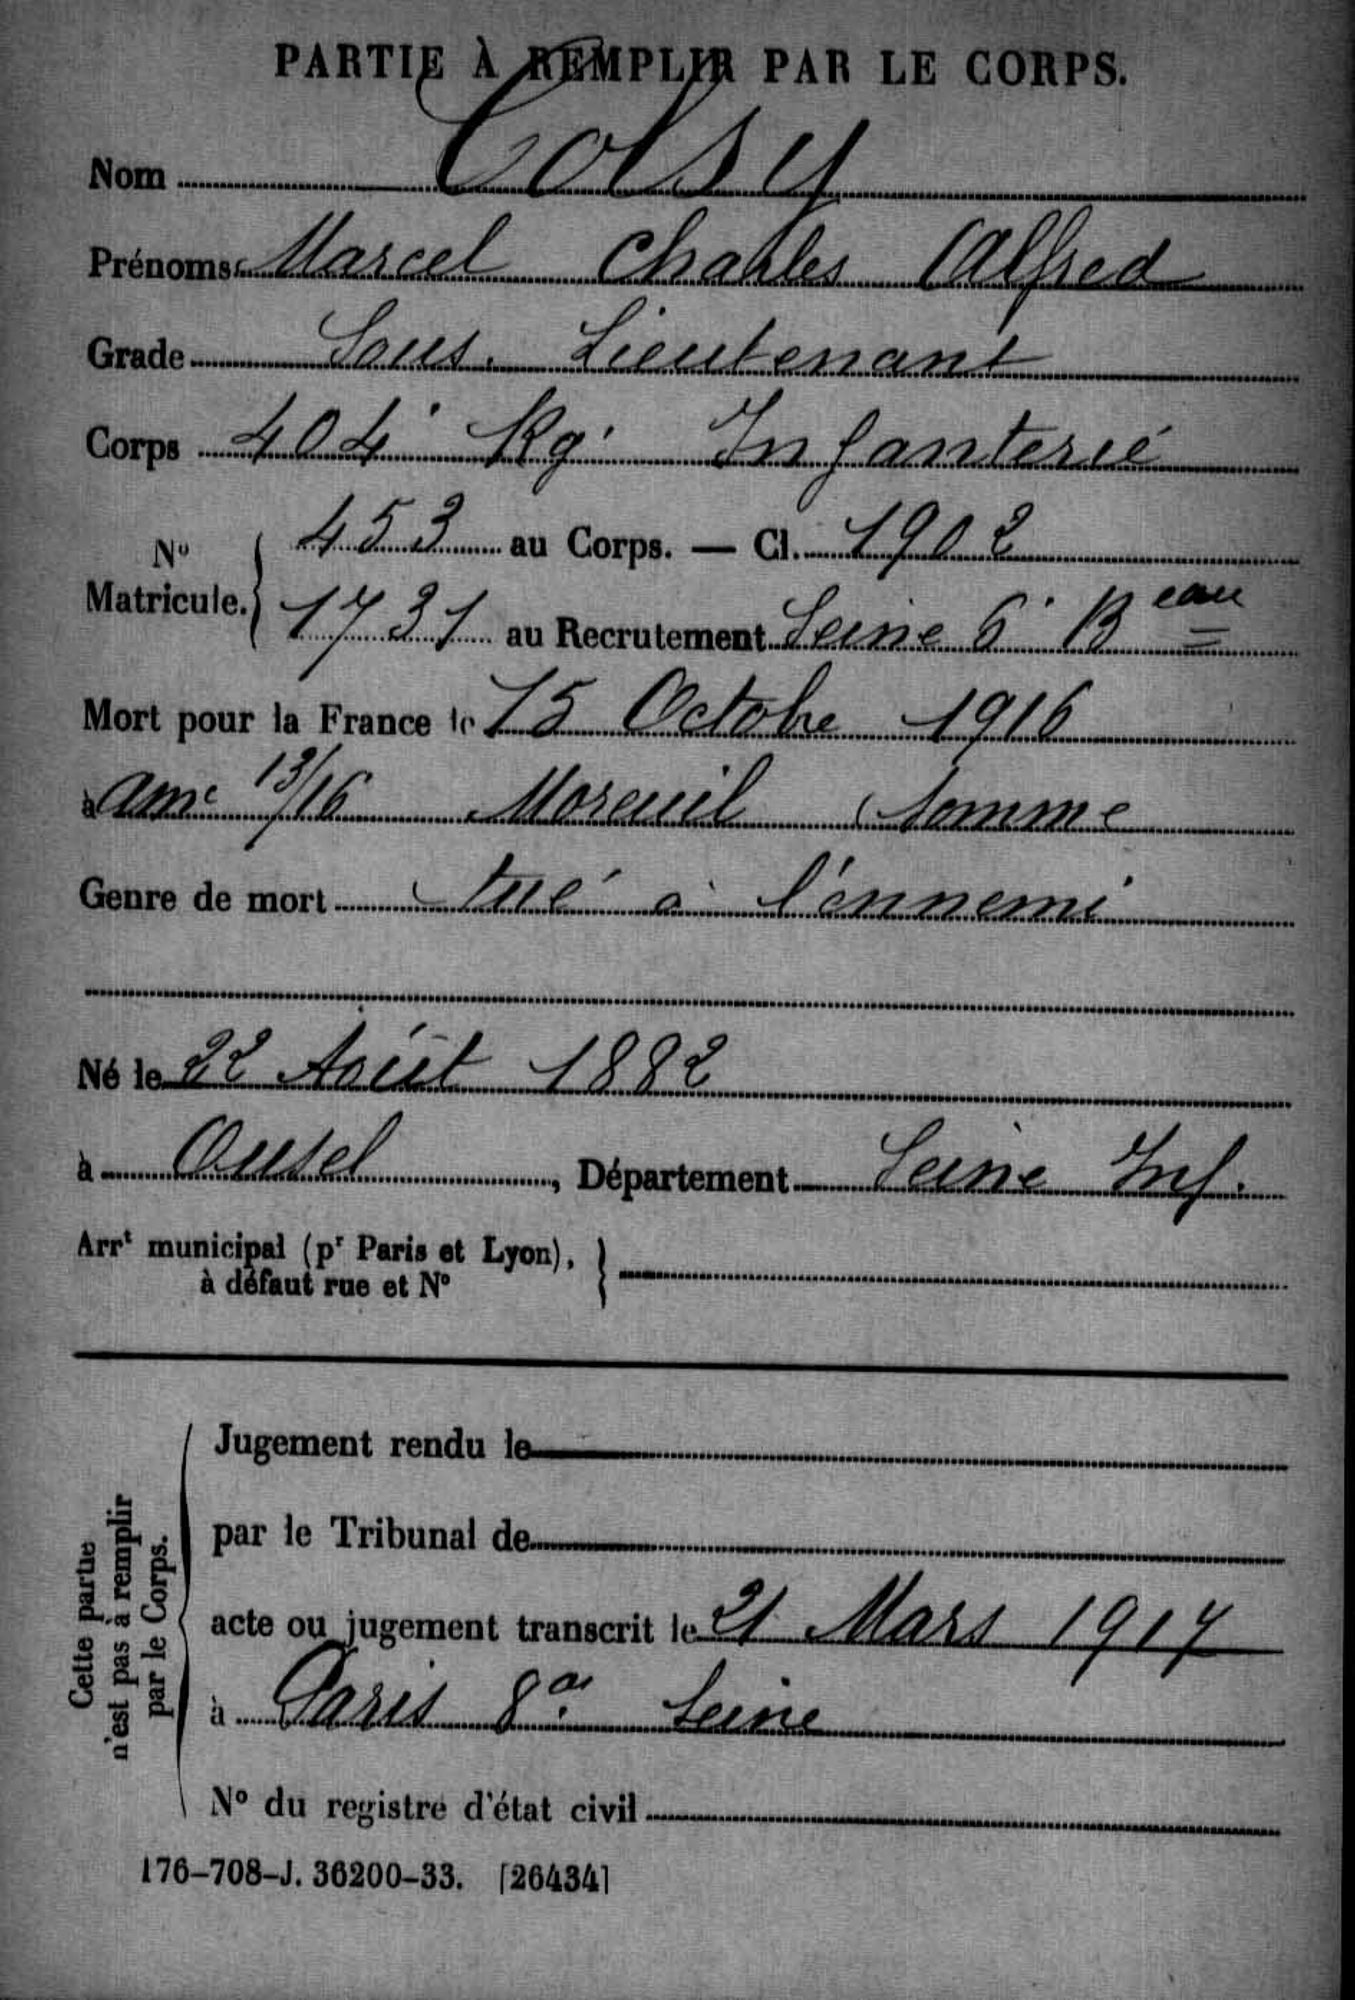 PARTIE À REMPLIR PAR LE CORPS.
Nom Colsy
Prénoms Marcel Charles Alfred
Grade Sous. Lieutenant
Corps 404e Rgt Infanterie
No Matricule. { 453 au Corps. — Cl. 1902
1731 au Recrutement Seine 6e Beau
Mort pour la France le 15 Octobre 1916
à amce 13/16 Moreuil Somme
Genre de mort tué à l'ennemi
Né le 22 Août 1882
à , Département Seine Inf.
Arrt municipal (pr Paris et Lyon), }
à défaut rue et No
Cette partie
n'est pas à remplir
par le Corps.
Jugement rendu le
par le Tribunal de
acte ou jugement transcrit le 21 Mars 1917
à Paris 8e ar. Seine
No du registre d'état civil
176-708-J. 36200-33. [26434]